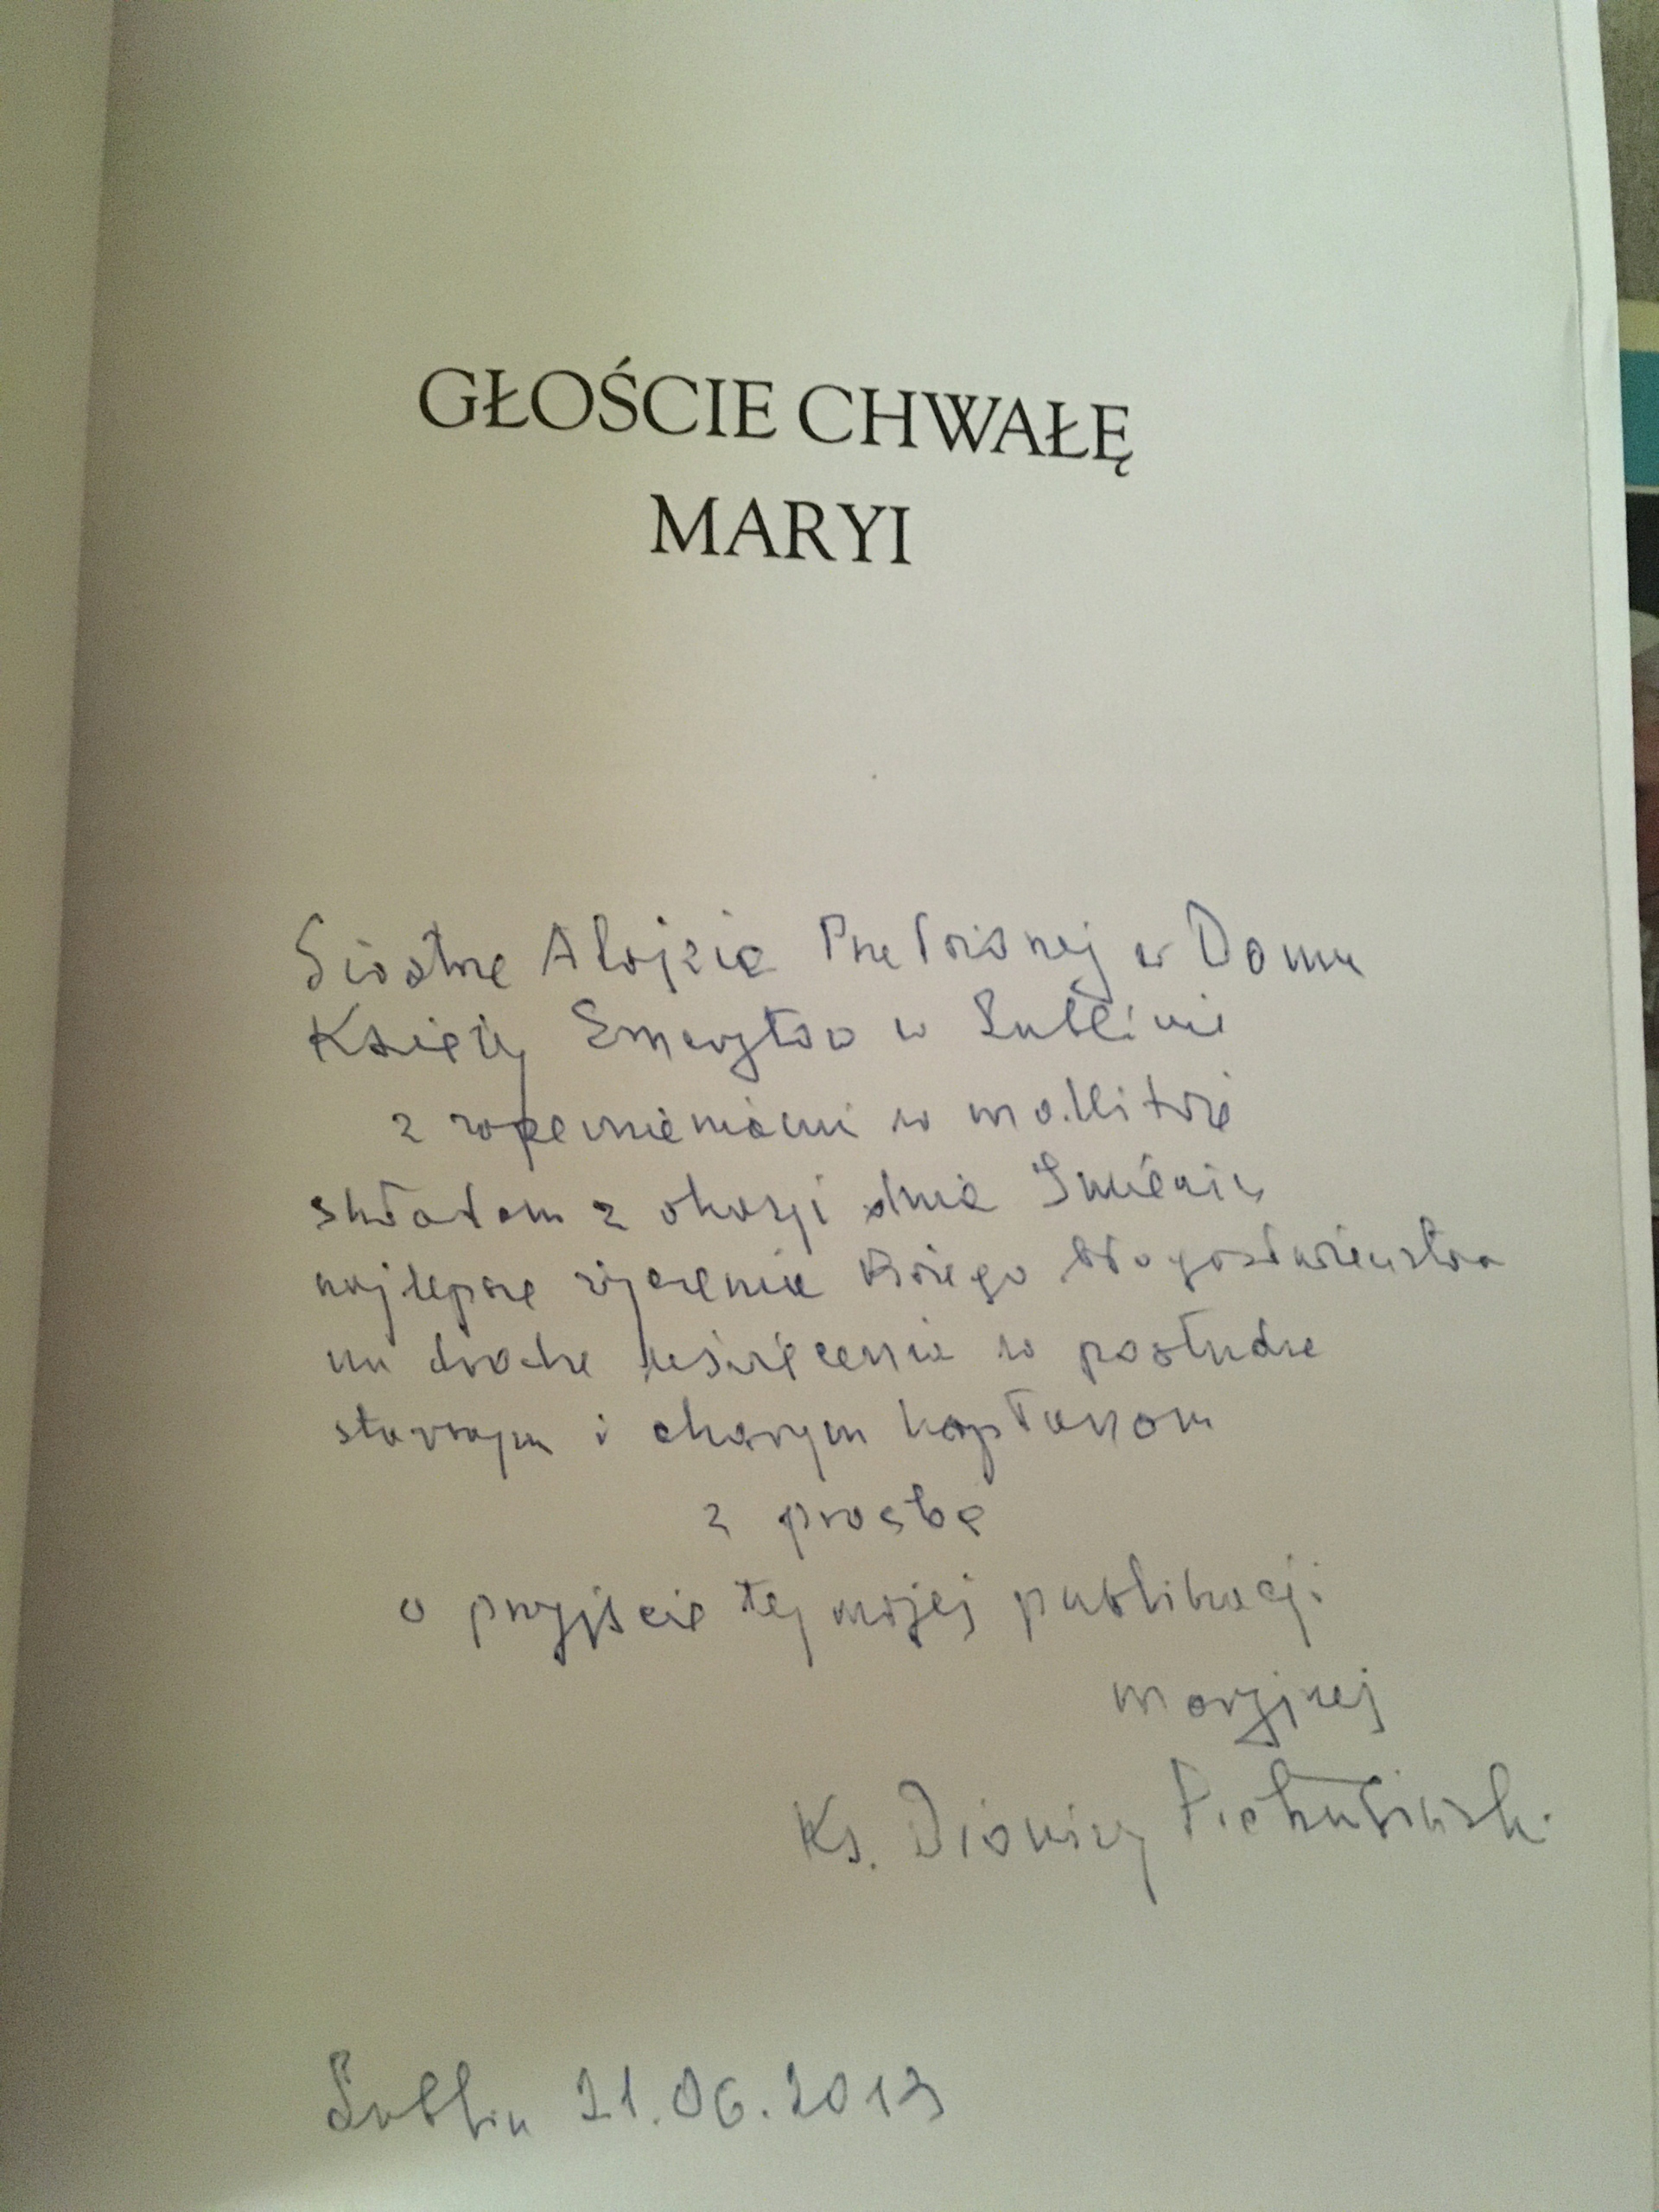 GŁOŚCIE CHWAŁĘ
MARYI
Siostrze Alojzie Przełożonej w Domu
Księży Emerytów w Lublinie
z zapewnieniami w modlitwie
składam z okazji dnia Imienin
najlepsze życzenia Bożego błogosławieństwa
na drodze uświęcenia w posłudze
starszym i chorym kapłanom
z prośbą
o przyjęcie tej mojej publikacji
maryjnej
Ks. Dionizy Pietrusiński
Lublin 21.06.2013